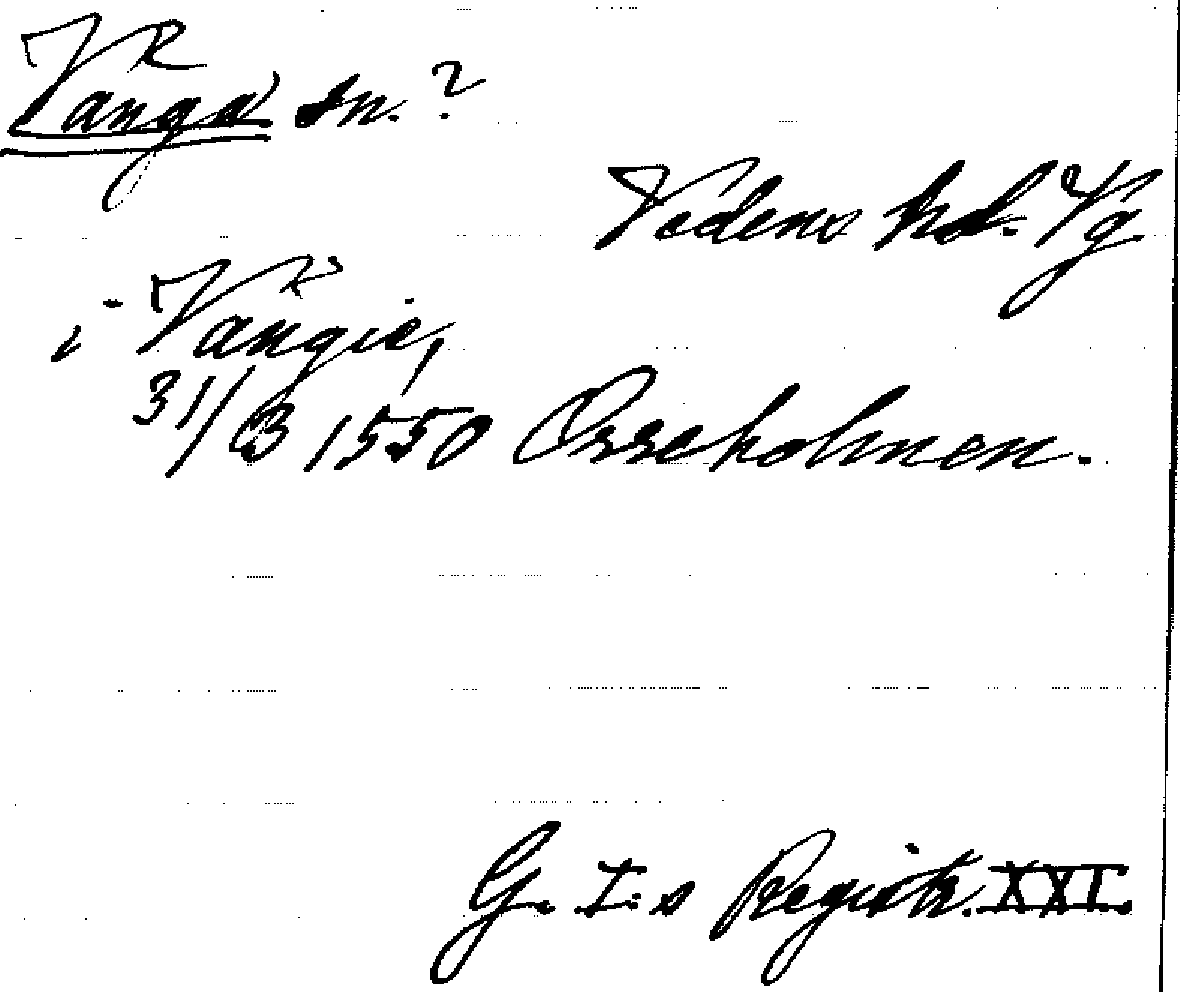 Vånga sn. ?
Vedens hd. Vg
i Vångie,
31/3 1550 Orreholmen.
G. I:s Registr. XXI.